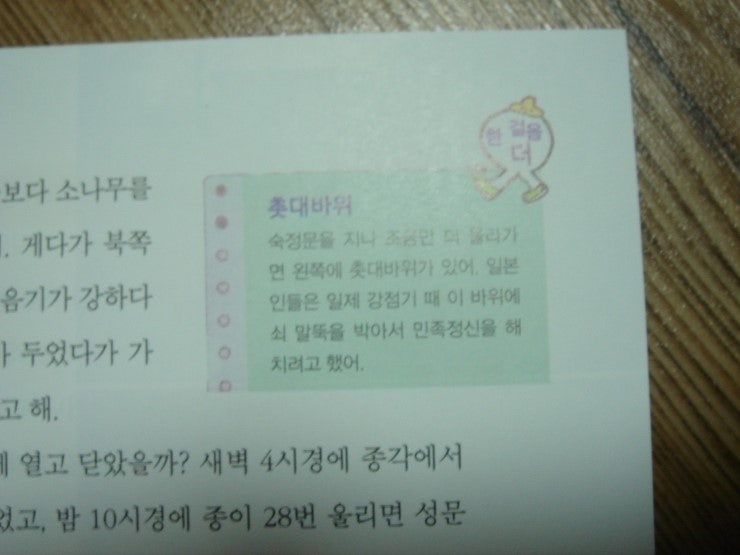 한 걸음
더
촛대바위
숙정문을 지나 조금만 더 올라가
면 왼쪽에 촛대바위가 있어. 일본
인들은 일제 강점기 때 이 바위에
쇠 말뚝을 박아서 민족정신을 해
치려고 했어.
보다 소나무를
게다가 북쪽
음기가 강하다
두었다가 가
고 해.
열고 닫았을까? 새벽 4시경에 종각에서
었고, 밤 10시경에 종이 28번 울리면 성문